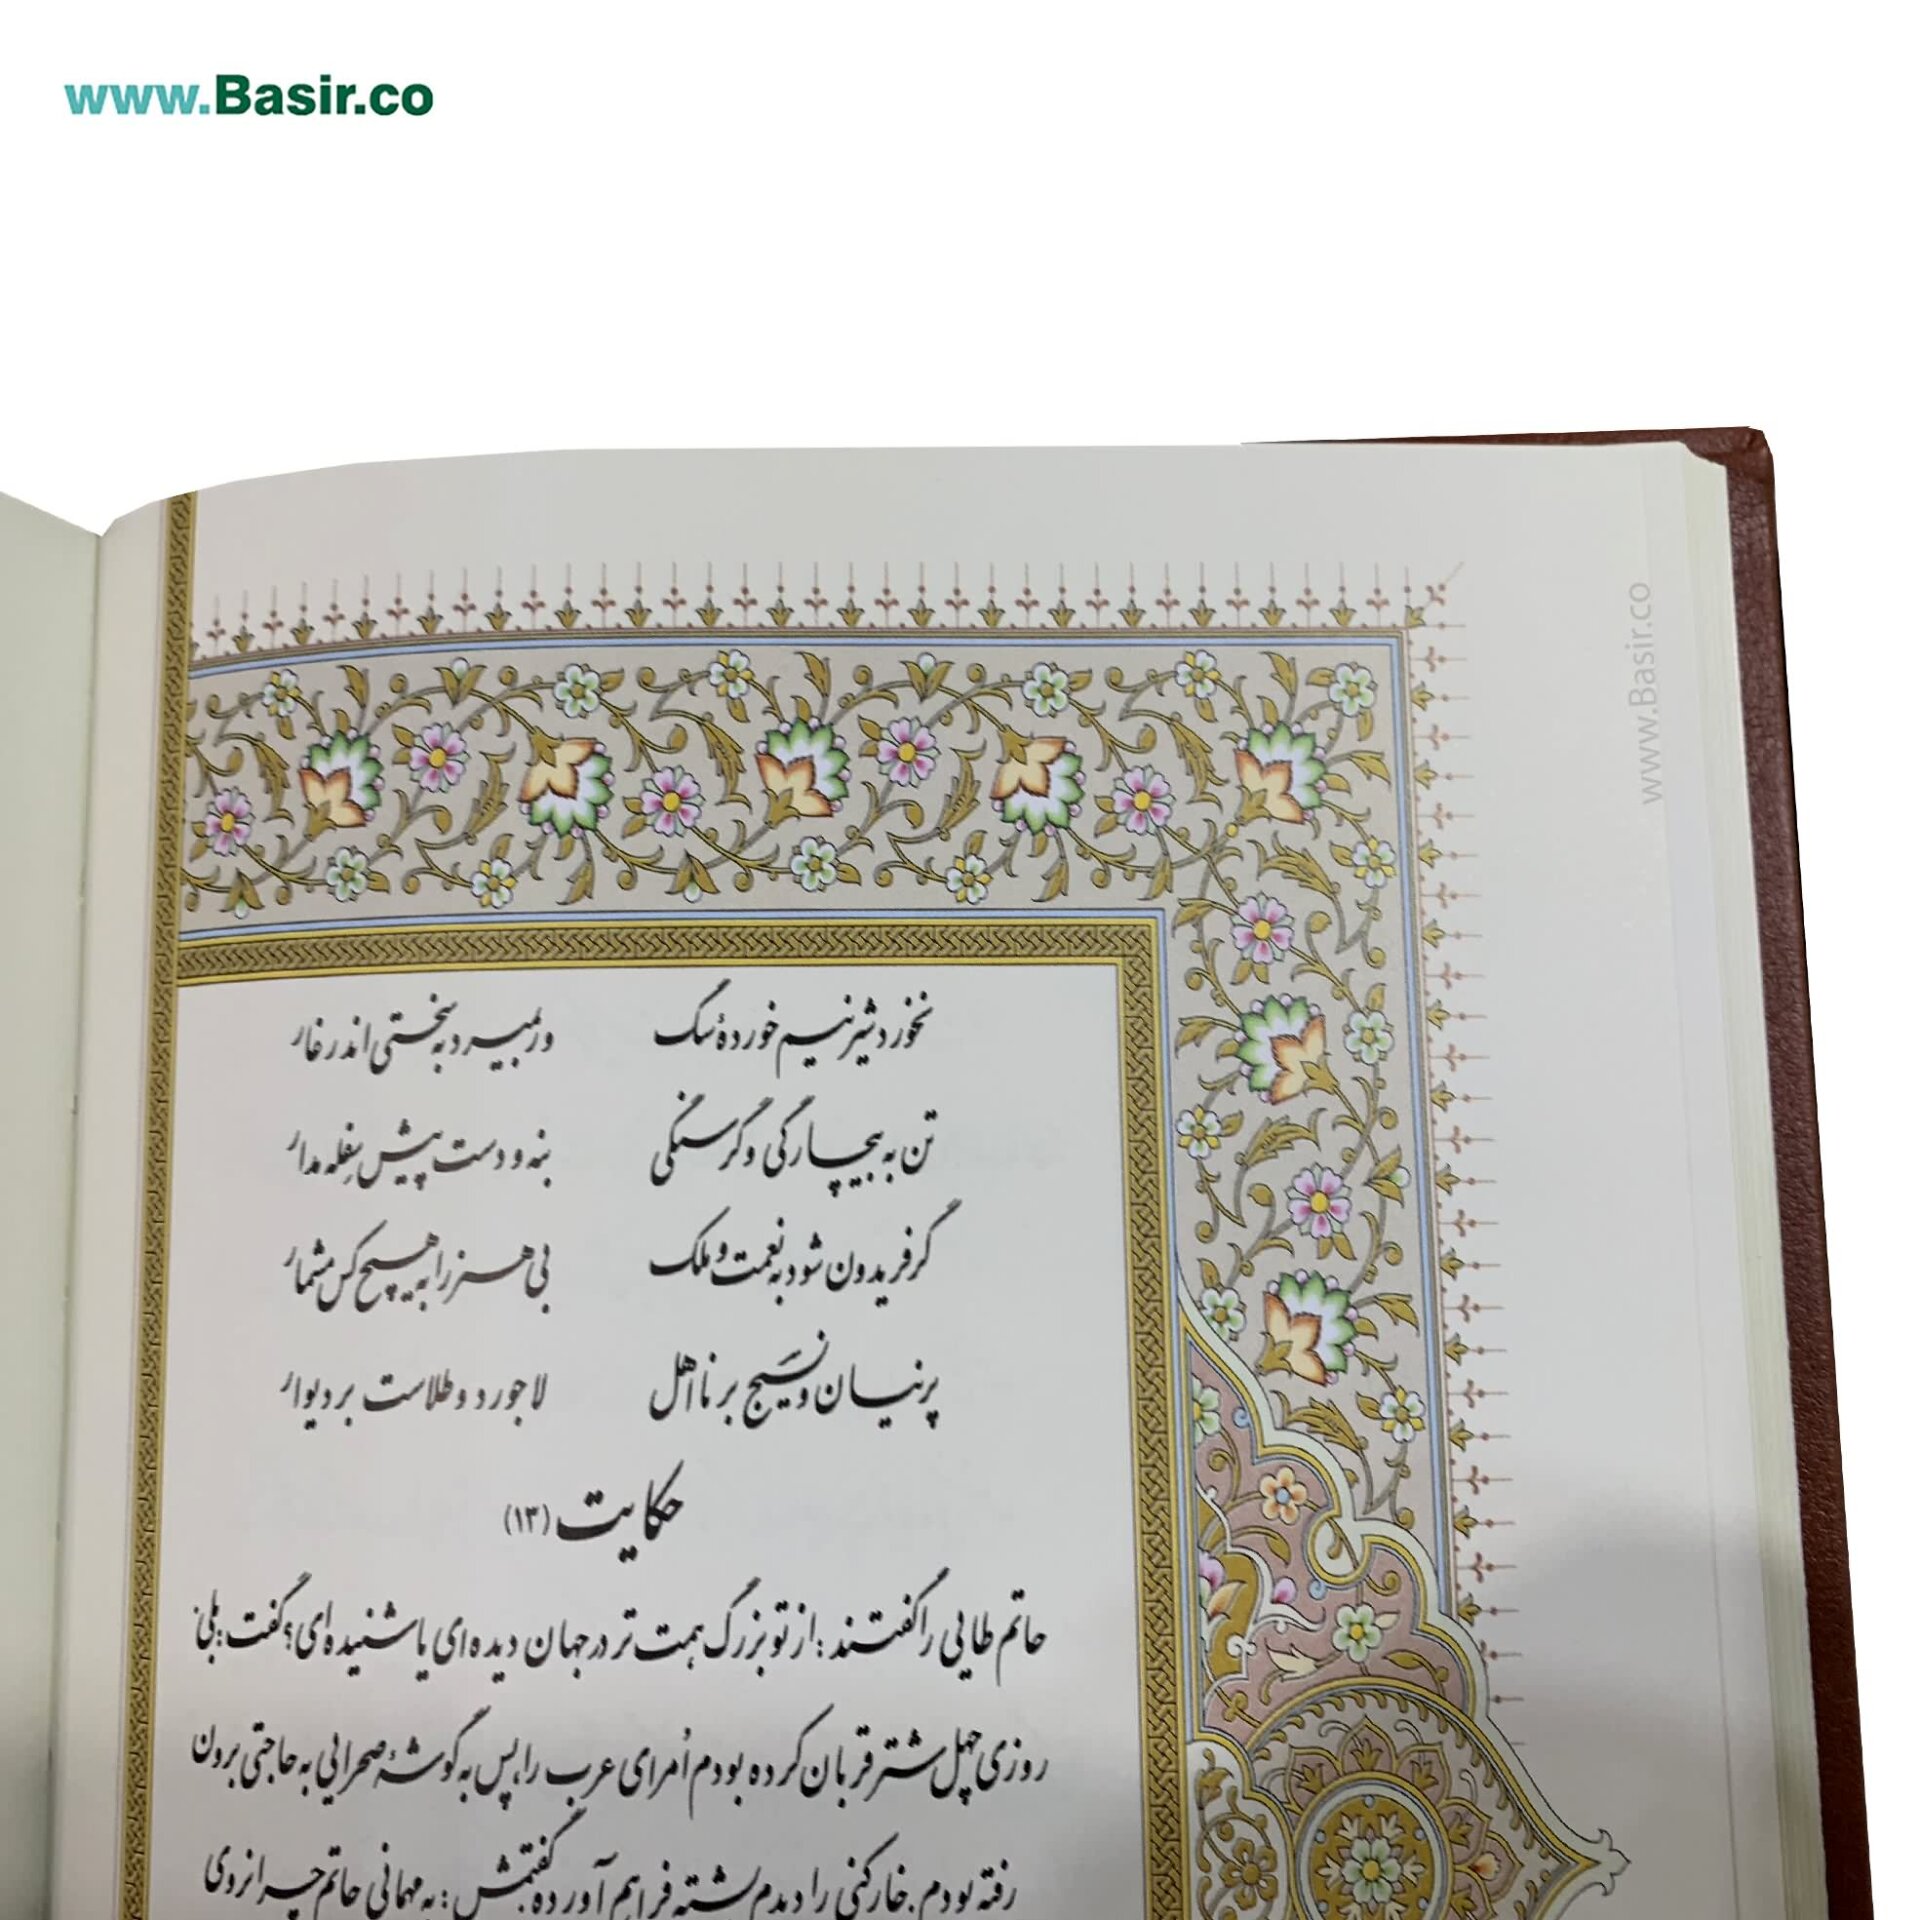 www.Basir.co
www.Basir.co
نخورد شیر نیم خوردهٔ سگ ور بمیرد به سختی اندر غار
تن به بیچارگی و گرسنگی بنه و دست پیش سِفله مدار
گر فریدون شود به نعمت و ملک بی هنر را به هیچ کس مشمار
پرنیان و نَسیج بر نااهل لاجورد و طلاست بر دیوار
حکایت (۱۳)
حاتم طایی را گفتند: از تو بزرگ همت تر در جهان دیده ای یا شنیده ای؟ گفت: بلی؛
روزی چهل شتر قربان کرده بودم اُمرای عرب را، پس به گوشهٔ صحرایی به حاجتی برون
رفته بودم. خارکنی را دیدم پشته فراهم آورده. گفتمش: به مهمانی حاتم چرا نروی